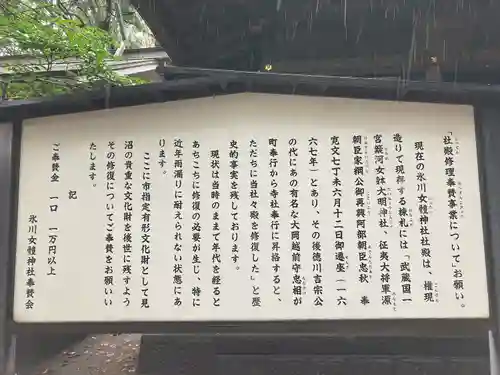 「社殿修理奉賛事業について」お願い。
現在の氷川女體神社社殿は、権現
造りで現存する棟札には「武蔵国一
宮簸河女躰大明神社、征夷大将軍源
朝臣家綱公御再興阿部朝臣忠秋、奉
寛文七丁未六月十二日御遷座」（一六
六七年）とあり、その後徳川吉宗公
の代にあの有名な大岡越前守忠相が
町奉行から寺社奉行に昇格すると、
ただちに当社々殿を修復した」と歴
史的事実を残しております。
現状は当時のままで年代を経ると
あちこちに修復の必要が生じ、特に
近年雨漏りに耐えられない状態にあ
ります。
ここに市指定有形文化財として見
沼の貴重な文化財を後世に残すよう
その修復についてご奉賛をお願いい
たします。
記
ご奉賛金　一口　一万円以上
氷川女體神社奉賛会